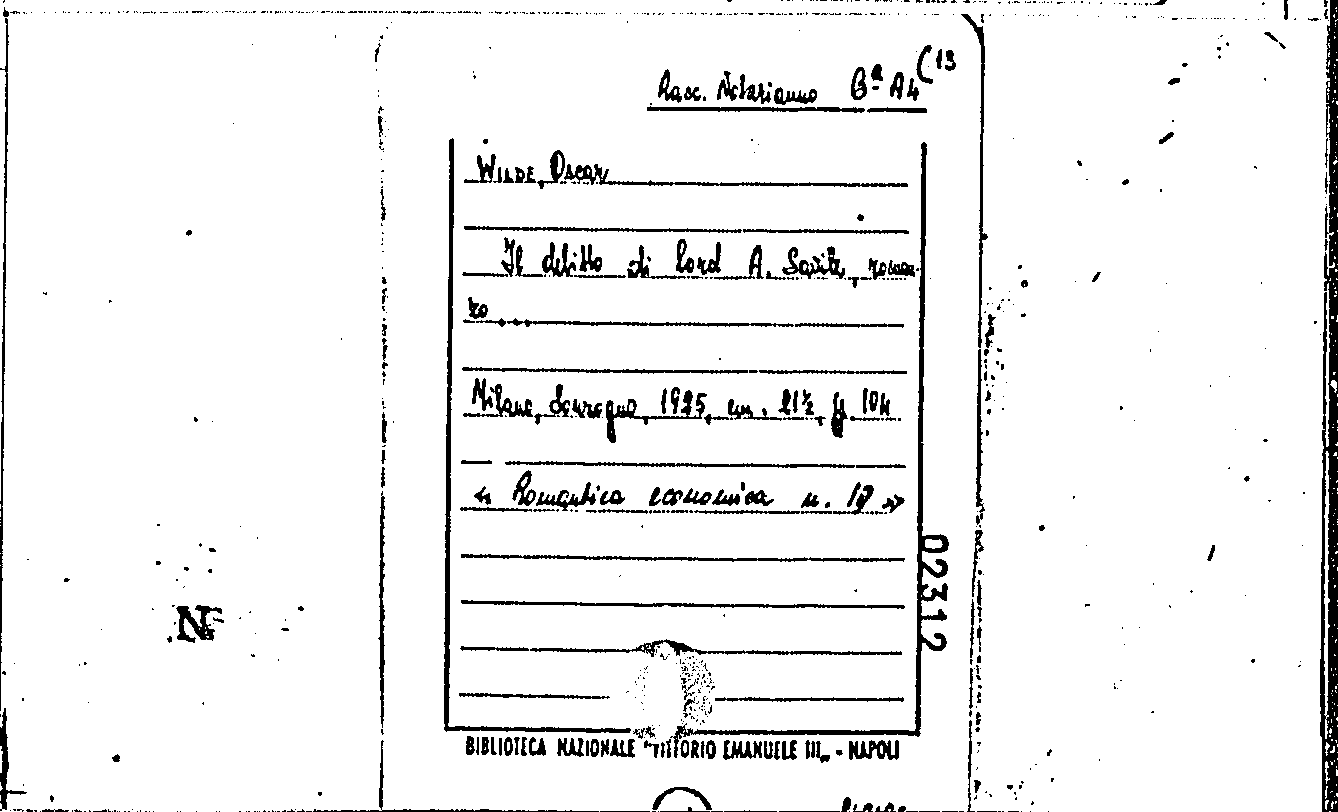 Racc. Notarianno Bª A4 (13
WILDE, Oscar
Il delitto di Lord A. Savile, roman-
zo....
Milano, Sonzogno, 1925, cm. 21½, ff. 104
« Romantica economica n. 17 »
02312
BIBLIOTECA NAZIONALE "VITTORIO EMANUELE III„ - NAPOLI